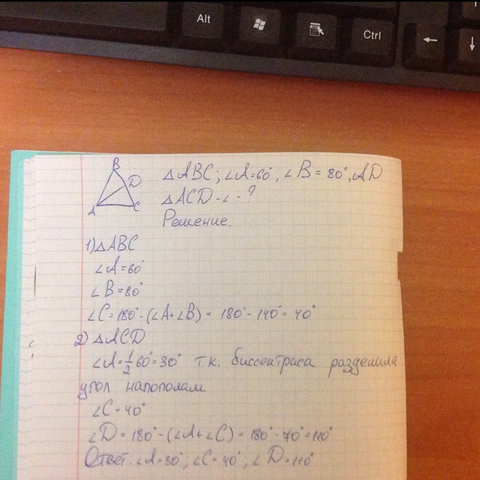 Alt
Ctrl
B
D
A
C
△ABC; ∠A=60°, ∠B=80°, AD
△ACD-∠-?
Решение.
1) △ABC
∠A=60°
∠B=80°
∠C=180°-(∠A+∠B)=180°-140°=40°
2) △ACD
∠A=1/2 60°=30° т.к. биссектраса разделила
угол напополам
∠C=40°
∠D=180°-(∠A+∠C)=180°-70°=110°
Ответ: ∠A=30°; ∠C=40°; ∠D=110°